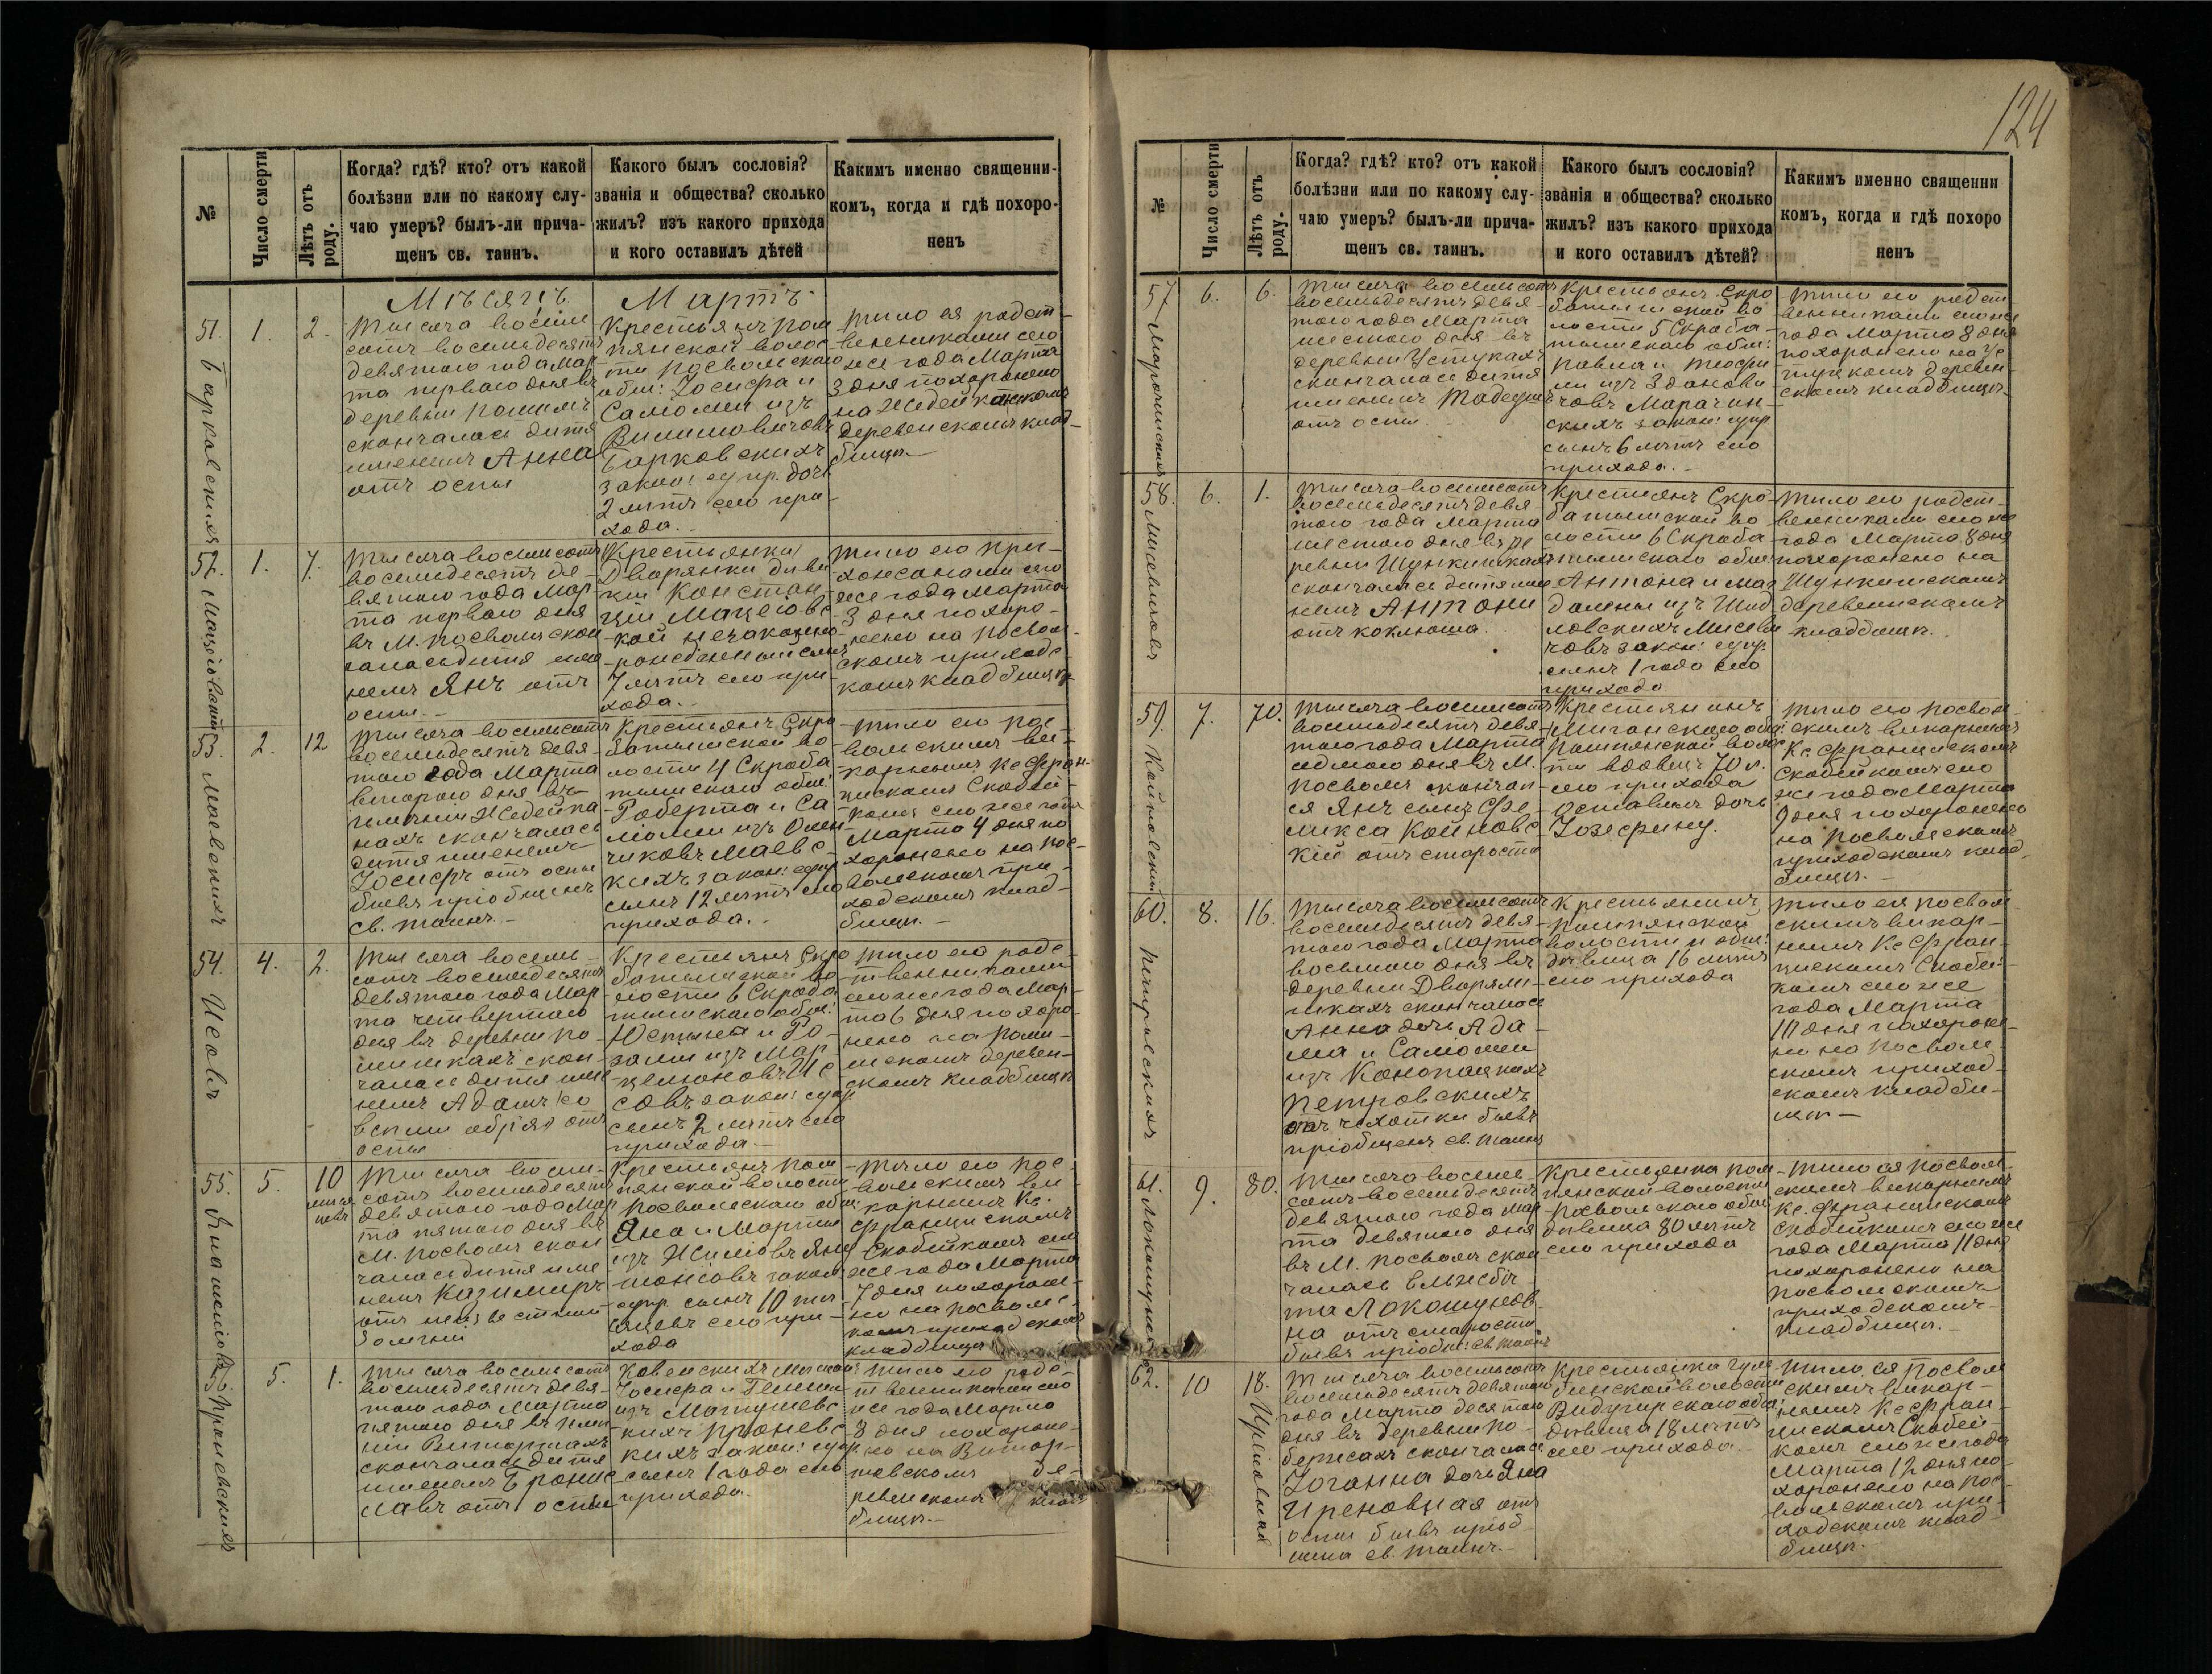 124
№
Число смерти
Лѣтъ отъ роду.
Когда? гдѣ? кто? отъ какой
болѣзни или по какому слу-
чаю умеръ? былъ-ли прича-
щенъ св. таинъ.
Какого былъ сословія?
званія и общества? сколько
жилъ? изъ какого прихода
и кого оставилъ дѣтей
Какимъ именно священни-
комъ, когда и гдѣ похоро-
ненъ
Мѣсяцъ
Мартъ
51.
Барковская
1.
2.
Тысяча восем
сотъ восемьдесятъ
девятого года Мар
та первого дня въ
деревни
скончалась дитя
именемъ Анна
отъ оспы
Крестьянъ Пом
пянской волос
ти Посвольскаго
общ: Іосифа и
Саломеи изъ
Вилимовичовъ
Барковскихъ
закон: супр. дочь
2 лѣтъ сего при
хода.
Тѣло ея родст
венниками сего
же года Марта
3 дня похоронено
на
деревенскомъ клад
бищѣ.
52.
1.
7.
Тысяча восемсотъ
восемьдесятъ де
вятого года Мар
та первого дня
въ М. Посволи скон
чалась дитя име
немъ Янъ отъ
оспы.
Крестьянки
Дворянки дѣви
цы Констан
ціи
кой незаконно
рожденный сынъ
7 лѣтъ сего при
хода.
Тѣло его при
хожанами сего
же года Марта
3 дня похоро
нено на Посволь
скомъ приходс
комъ кладбищѣ
53.
Маевскихъ
2.
12
Тысяча восемсотъ
восемьдесятъ девя
того года Марта
второго дня въ
имѣніи Жедейка
нахъ скончалась
дитя именемъ
Іосифъ отъ оспы
бывъ пріобщенъ
св. таинъ.
Крестьянъ Скро
батышской во
лости 4 Скроба
тышскаго общ:
Роберта и Са
ломеи изъ
Маевс
кихъ закон: супр
сынъ 12 лѣтъ сего
прихода.
Тѣло его пос
вольскимъ ви
карнымъ Кс Фран
цискомъ Скобей
комъ сего же года
Марта 4 дня по
хоронено на пос
вольскомъ при
ходскомъ клад
бищѣ.
54.
Исовъ
4.
2.
Тысяча восемь
сотъ восемьдесятъ
девятого года Мар
та четвертого
дня въ деревни По
шкахъ скон
чалась дитя име
немъ Адамъ
отъ
оспы
Крестьянъ Скро
батышской во
лости 6 Скроба
тышскаго общ:
Юстына и Ро
заліи изъ Мар
Ис
совъ закон: супр
сынъ 2 лѣтъ сего
прихода.
Тѣло его родс
твенниками
сего же года Мар
та 6 дня похоро
нено на
скомъ деревен
скомъ кладбищѣ
55.
5.
10
мѣся
цевъ
Тысяча восем
сотъ восемьдесятъ
девятого года Мар
та пятого дня въ
М. Посволи скон
чалась дитя име
немъ Казимиръ
отъ неизвестной
болезни
Крестьянъ Пом
пянской волости
Посвольскаго общ:
Яна и Марты
изъ
закон
супр. сынъ 10 мѣ
сяцевъ сего при
хода
Тѣло его пос
вольскимъ ви
карнымъ Кс.
Францискомъ
Скобейкомъ сего
же года Марта
7 дня похороне
но на посвольс
комъ приходскомъ
кладбищѣ
56.
5.
1.
Тысяча восемсотъ
восемьдесятъ девя
того года Марта
пятого дня въ имѣ
ніи
скончалась дитя
именемъ Бронис
лавъ отъ оспы
Ковенскихъ мѣщан:
Іосифа и
изъ Матушевс
кихъ Проневс
кихъ закон: супр.
сынъ 1 года сего
прихода.
Тѣло его родс
твенниками сего
же года Марта
8 дня похороне
но на
де
ревенскомъ клад
бищѣ.
№
Число смерти
Лѣтъ отъ роду.
Когда? гдѣ? кто? отъ какой
болѣзни или по какому слу-
чаю умеръ? былъ-ли прича-
щенъ св. таинъ.
Какого былъ сословія?
званія и общества? сколько
жилъ? изъ какого прихода
и кого оставилъ дѣтей?
Какимъ именно священни
комъ, когда и гдѣ похоро
ненъ
57
6.
6.
Тысяча восемсотъ
восемьдесятъ девя
того года Марта
шестого дня въ
деревни Устукахъ
скончалась дитя
именемъ Тадеушъ
отъ оспы
Крестьянъ Скро
батышской во
лости 5 Скроба
тышскаго общ:
Павла и Теофи
ли изъ Здanови
човъ Марачин
скихъ закон: супр
сынъ 6 лѣтъ сего
прихода.
Тѣло его родст
венниками сего же
года Марта 8 дня
похоронено на Ус
тукскомъ деревен
скомъ кладбищѣ.
58.
Мисевичовъ
6.
1.
Тысяча восемсотъ
восемьдесятъ девя
того года Марта
шестого дня въ де
ревни
скончалась дитя име
немъ Антони
отъ коклюша.
Крестьянъ Скро
батышской во
лости 6 Скроба
тышскаго общ:
Антона и Маг
далены изъ Шид
ловскихъ Мисеви
човъ закон: супр.
сынъ 1 года сего
прихода
Тѣло его родст
венниками сего же
года Марта 8 дня
похоронено на
деревенскомъ
кладбищѣ.
59.
Койновскій
7.
70.
Тысяча восемсотъ
восемьдесятъ девя
того года Марта
седмого дня въ М.
Посволи скончал
ся Янъ сынъ Фе
ликса Койновс
кій отъ старости
Крестьянинъ
общ:
Помпянской волос
ти вдовецъ 70 л.
сего прихода
оставилъ дочь
Іозефину.
Тѣло его посволь
скимъ викарнымъ
Кс Францискомъ
Скобейкомъ сего
же года Марта
9 дня похоронено
на посвольскомъ
приходскомъ клад
бищѣ.
60.
8.
16.
Тысяча восемсотъ
восемьдесятъ девя
того года Марта
восьмого дня въ
деревни
скончалась
Анна дочь Ада
ма и Саломеи
изъ Конопацкихъ
Петровскихъ
отъ чахотки бывъ
пріобщена св. таинъ
Крестьянинъ
Помпянской
волости и общ:
дѣвица 16 лѣтъ
сего прихода
Тѣло ея посволь
скимъ викар
нымъ Кс Фран
цискомъ Скобей
комъ сего же
года Марта
10 дня похороне
но на посволь
скомъ приход
скомъ кладби
щѣ
61.
9.
80.
Тысяча восемь
сотъ восемьдесятъ
девятого года Мар
та девятого дня
въ М. Посволи скон
чалась Ельжбе
та Локошунов
на отъ старости
бывъ пріобщ: св таинъ
Крестьянка Пом
пянской волости
Посвольскаго общ:
дѣвица 80 лѣтъ
сего прихода
Тѣло ея посволь
скимъ викарнымъ
Кс. Францискомъ
Скобейкомъ сего же
года Марта 11 дня
похоронено на
посвольскомъ
приходскомъ
кладбищѣ.
62.
10
18.
Тысяча восемсотъ
восемьдесятъ девятого
года Марта десятого
дня въ деревни По
скончалась
Іоганна дочь Яна
отъ
оспы бывъ пріоб
щена св. таинъ.
Крестьянка
волости
общ:
дѣвица 18 лѣтъ
сего прихода.
Тѣло ея посволь
скимъ викар
нымъ Кс Фран
цискомъ Скобей
комъ сего же года
Марта 12 дня по
хоронено на пос
вольскомъ при
ходскомъ клад
бищѣ.